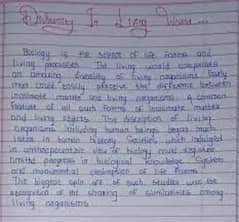 Diversity In Living World...
Biology is the science of life forms and
living processes. The living world comprises
an amazing diversity of living organisms. Early
man could easily perceive the difference between
inanimate matter and living organisms. A common
feature of all such forms of inanimate matter
and living objects. The description of living
organisms including human beings began much
later in human history. Societies which indulged
in anthropocentric view of biology could register
limited progress in biological knowledge. Systematic
and monumental description of life forms
The biggest spin off of such studies was the
recognition of the sharing of similarities among
living organisms